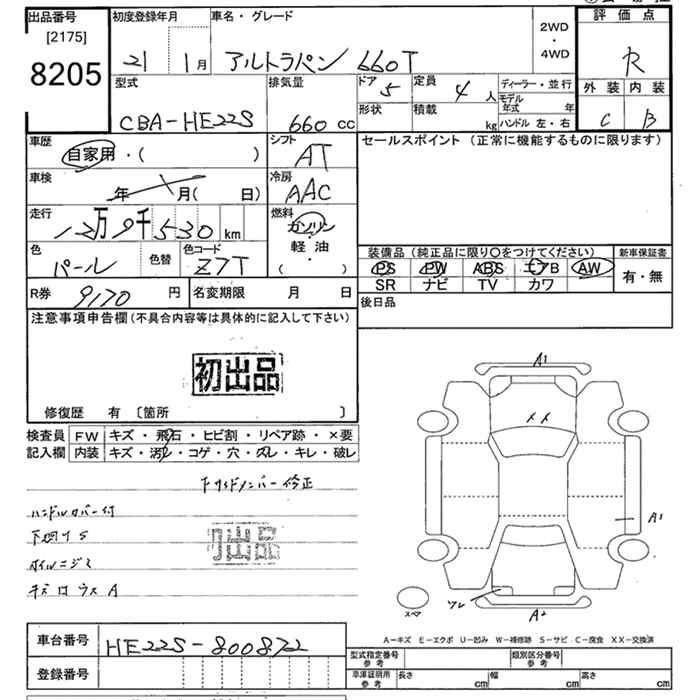 出品番号
[2175]
8205
初度登録年月
21 1月
車名・グレード
アルトラパン 660T
2WD
・
4WD
評価点
R
外装 内装
C B
型式
CBA-HE22S
排気量
660 cc
ドア
5
定員
4 人
ディーラー・並行
モデル年式 年
形状
積載
kg
ハンドル 左・右
車歴
自家用・( )
シフト
AT
セールスポイント (正常に機能するものに限ります)
車検
年 月( 日)
冷房
AAC
走行
12万9千530 km
燃料
ガソリン
・
軽・油
( )
色
パール
色替
色コード
Z7T
装備品 (純正品に限り○をつけてください)
新車保証書
PS PW ABS エアB AW
SR ナビ TV カワ
有・無
R券
9170 円
名変期限 月 日
後日品
注意事項申告欄(不具合内容等は具体的に記入して下さい)
初出品
修復歴 有 〔箇所 〕
検査員
記入欄
FW キズ・飛石・ヒビ割・リペア跡・×要
内装 キズ・汚レ・コゲ・穴・スレ・キレ・破レ
下サイドメンバー修正
ハンドルカバー付
下廻りS
オイルニジミ
初出品
A1
A1
A2
ワレ
スペア
A-キズ E-エクボ U-凹み W-補修跡 S-サビ C-腐食 XX-交換済
車台番号
HE22S-800872
登録番号
型式指定番号
参考
類別区分番号
参考
車庫証明用
参考
長さ cm
幅 cm
高さ cm